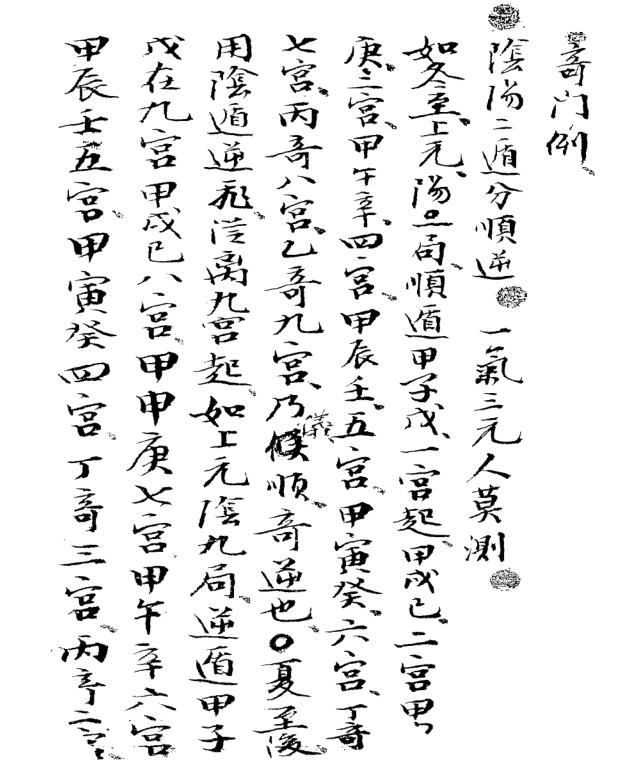 奇门例
陰陽二遁分順逆 一氣三元人莫測
如冬至上元陽一局順遁甲子戊一宮起甲戌己二宮甲
庚三宮甲午辛四宮甲辰壬五宮甲寅癸六宮丁奇
七宮丙奇八宮乙奇九宮乃儀順奇逆也○夏至後
用陰遁逆飛從离九宮起如上元陰九局逆遁甲子
戊在九宮甲戌己八宮甲申庚七宮甲午辛六宮
甲辰壬五宮甲寅癸四宮丁奇三宮丙奇二宮